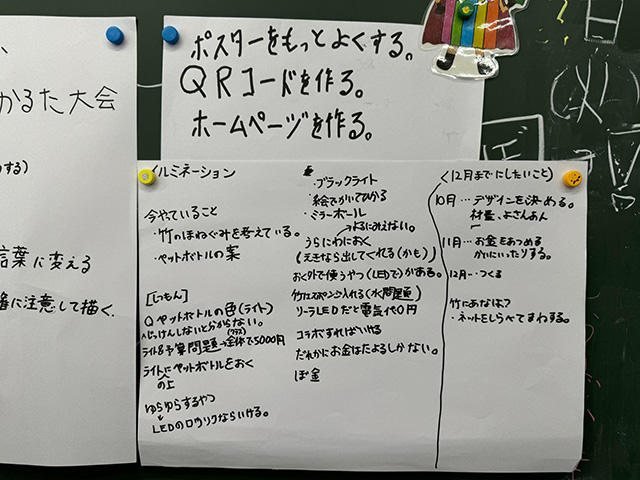 かるた大会
する)
言葉に変える
に注意して描く、
ポスターをもっとよくする。
QRコードを作る。
ホームページを作る。
イルミネーション
今やっていること
・竹のほねぐみを考えている。
・ペットボトルの案
[しつもん]
Qペットボトルの色(ライト)
→じっけんしないと分からない。
ライト&予算問題→全体で5000円
(クラス)
ライトにペットボトルをおく
の上
ゆらゆらするやつ
LEDのロウソクならいける。
・ブラックライト
・絵でかいてひかる
・ミラーボール
→よるにみえない。
うらにわにおく
(えきなら出してくれる(かも))
おく外で使うやつ(LEDで)がある。
竹にスポンジ入れる(水問題)
ソーラLEDだと電気代0円
コラボすればいける
だれかにお金はたよるしかない。
ぼ金
〈12月までにしたいこと〉
10月…デザインを決める。
材量、よさんあん
11月…お金をあつめる
かいにいったりする。
12月…つくる
竹にあなは?
・ネットをしらべてまわする。